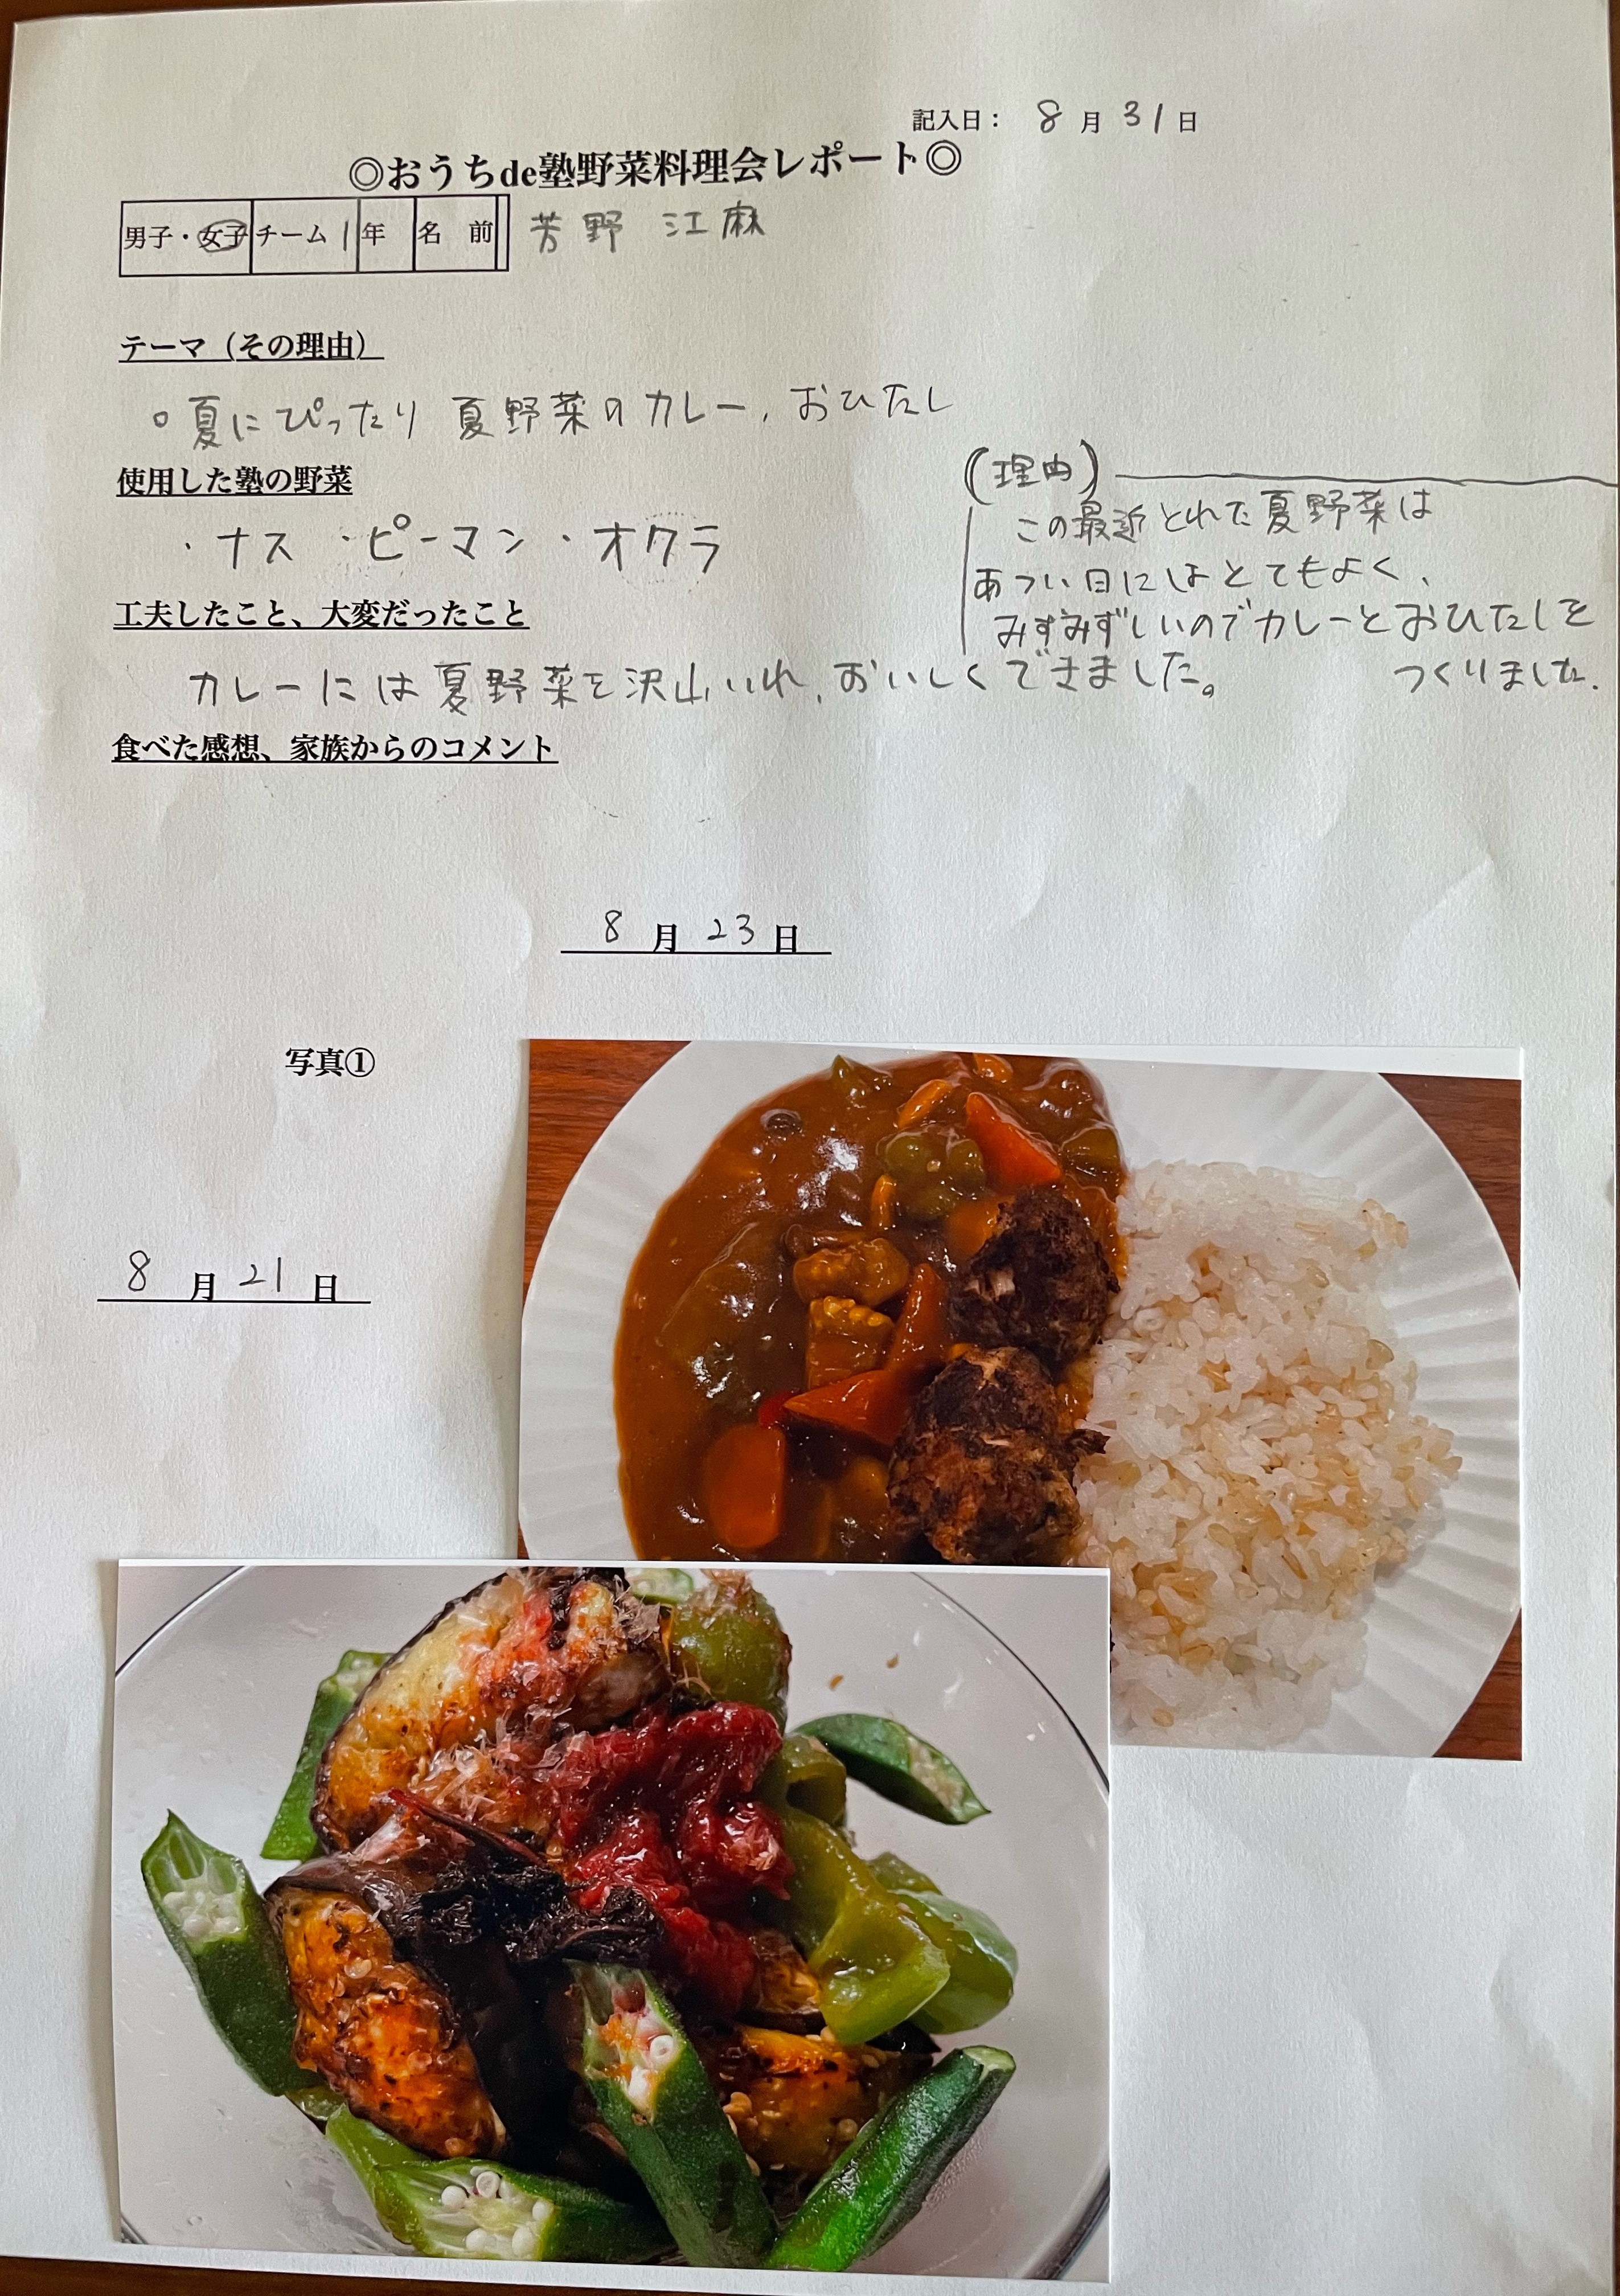 記入日： 8 月 31 日
◎おうちde塾野菜料理会レポート◎
男子・女子 チーム 1 年 名 前 芳野 江麻
テーマ（その理由）
○夏にぴったり 夏野菜のカレー、おひたし
使用した塾の野菜
・ナス ・ピーマン ・オクラ
(理由)
この最近とれた夏野菜は
あつい日にはとてもよく、
みずみずしいのでカレーとおひたしを
つくりました.
工夫したこと、大変だったこと
カレーには夏野菜を沢山いれ、おいしくできました。
食べた感想、家族からのコメント
8 月 23 日
写真①
8 月 21 日